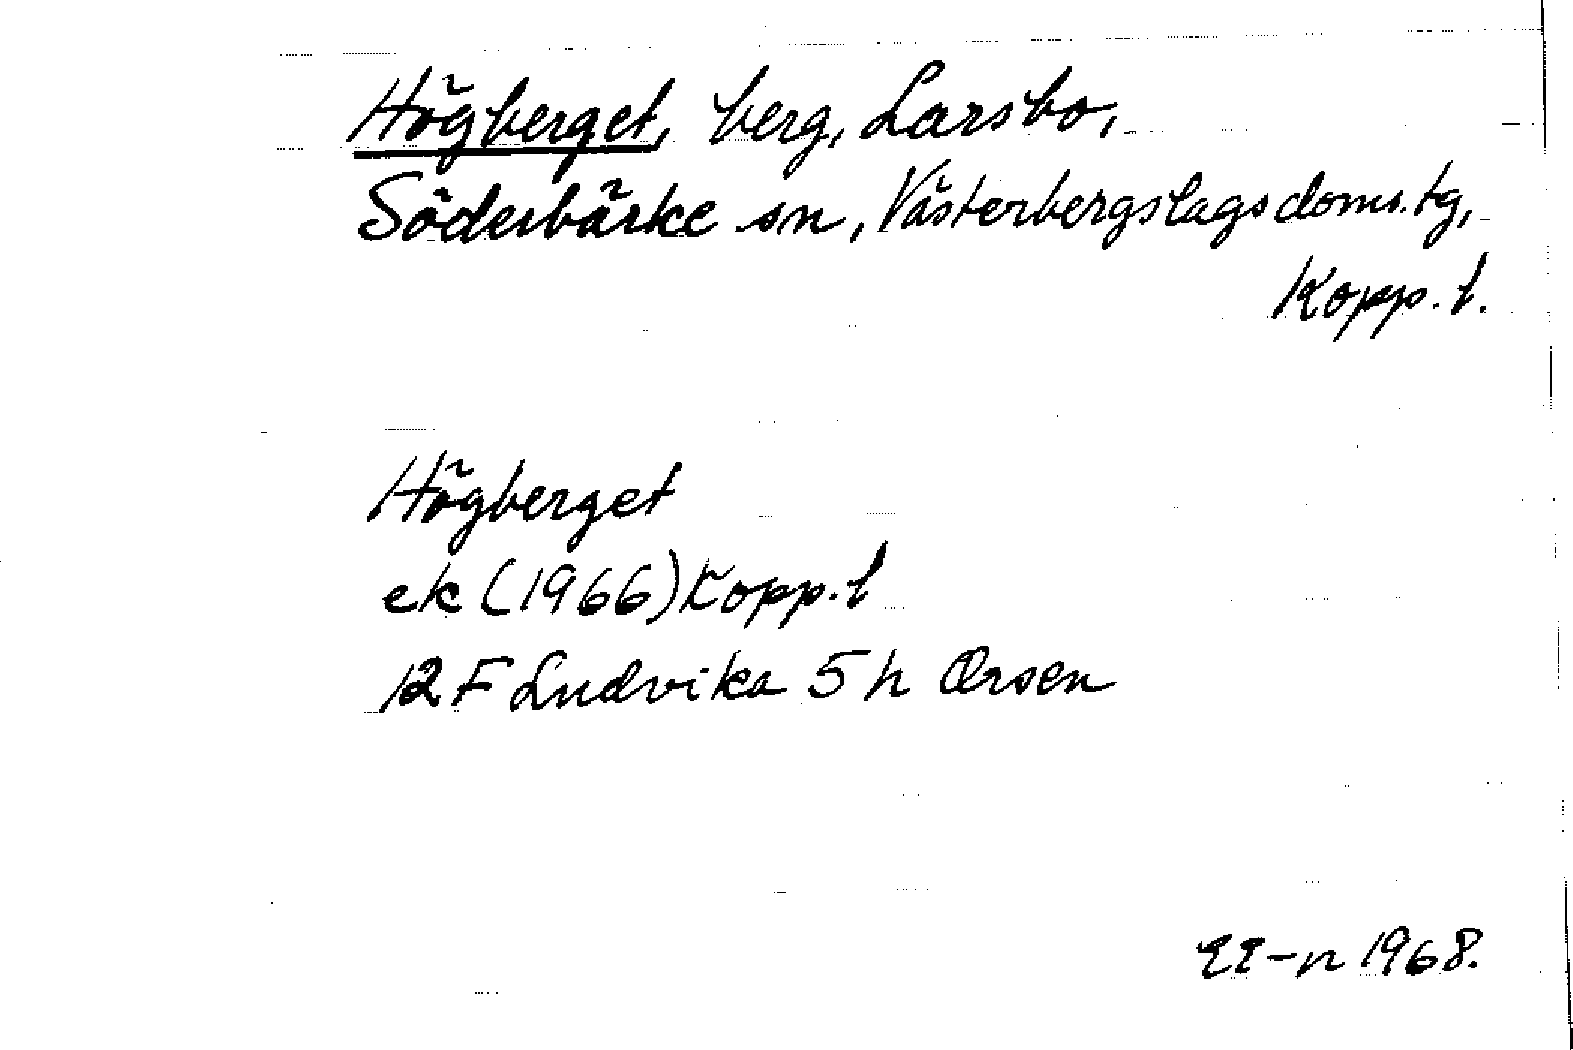 Högberget, berg, Larsbo,
Söderbärke sn, Västerbergslagsdoms.tg,
Kopp. l.
Högberget
ek (1966) Kopp. l
12 F Ludvika 5 h Orsen
EE-n 1968.